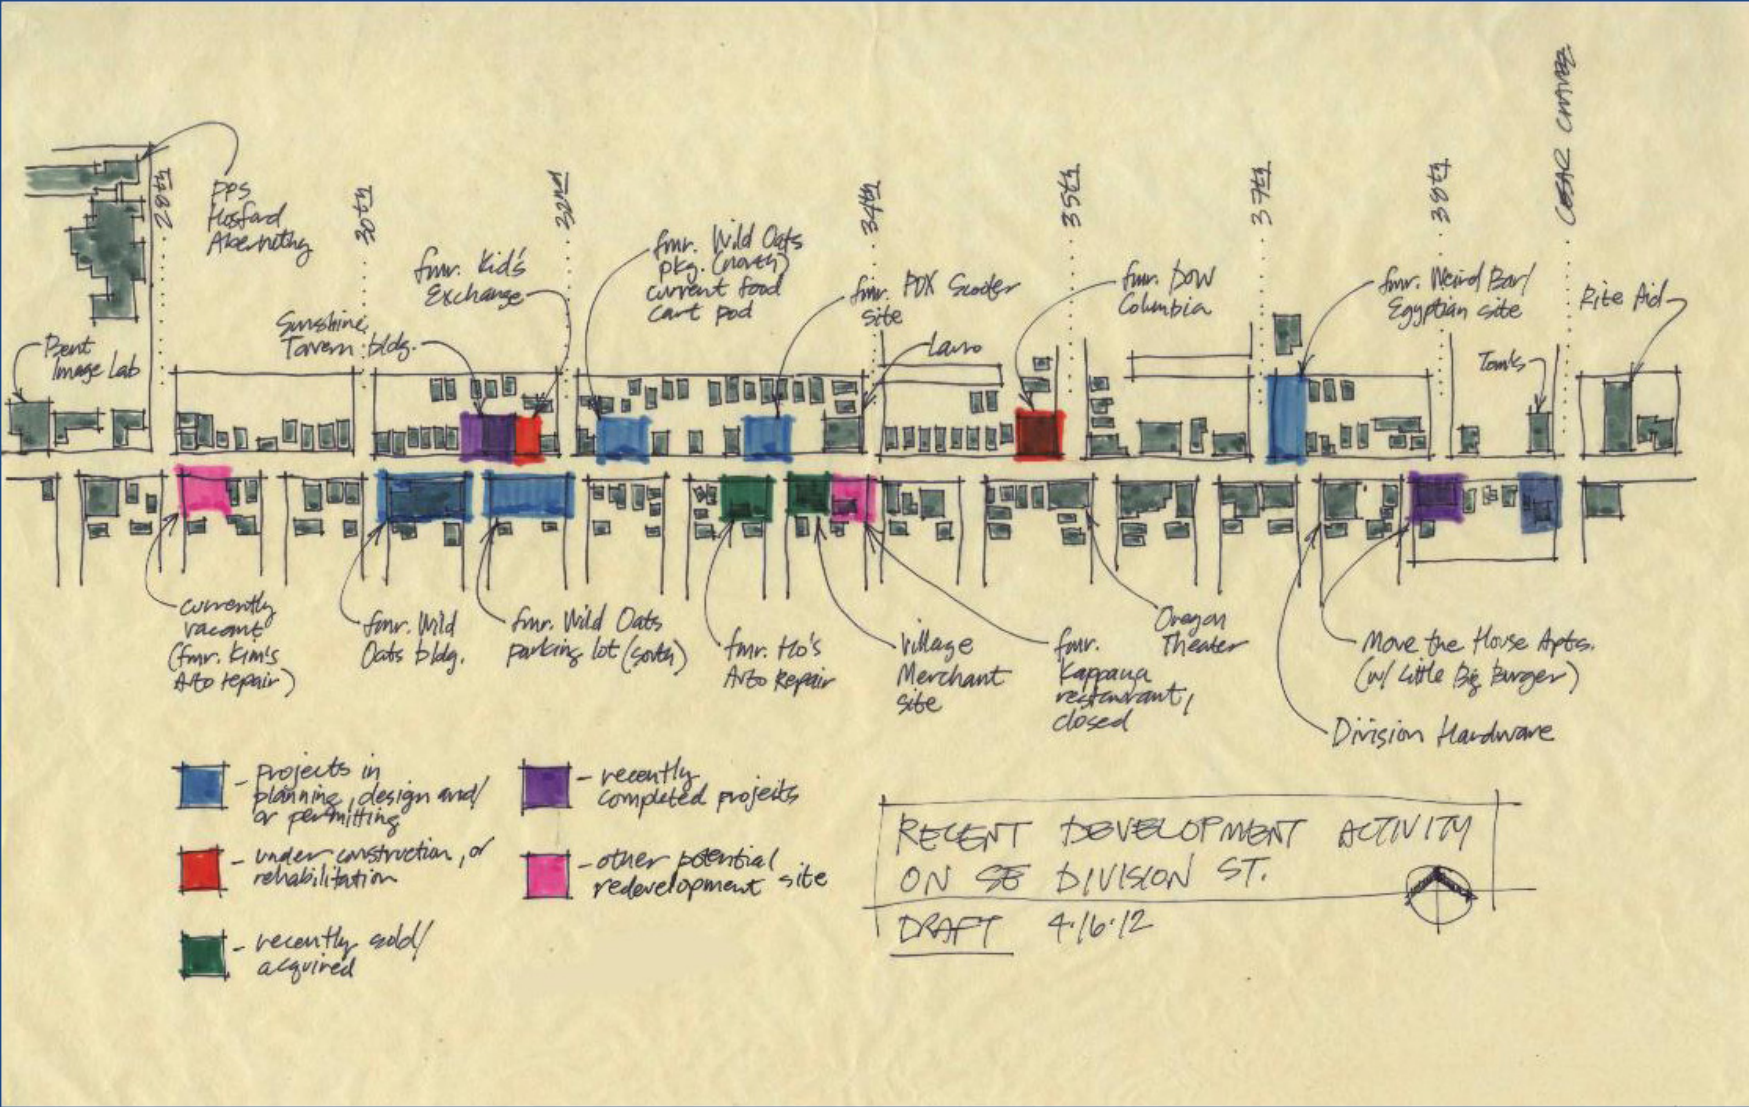 CESAR CHAVEZ
28th
30th
32nd
34th
35th
37th
38th
PPS
Hosford
Abernathy
fmr. Kid's
Exchange
fmr. Wild Oats
pkg. (north)
current food
cart pod
fmr. PDX Scooter
site
fmr. Dow
Columbia
fmr. Weird Bar/
Egyptian site
Rite Aid
Bent
Image Lab
Sunshine
Tavern bldg.
Lauro
Tom's
currently
vacant
(fmr. Kim's
Auto repair)
fmr. Wild
Oats bldg.
fmr. Wild Oats
parking lot (south)
fmr. Ho's
Auto Repair
Village
Merchant
site
fmr.
Kappaya
restaurant,
closed
Oregon
Theater
Move the House Apts.
(w/ Little Big Burger)
Division Hardware
- projects in
planning, design and/
or permitting
- under construction, or
rehabilitation
- recently sold/
acquired
- recently
completed projects
- other potential
redevelopment site
RECENT DEVELOPMENT ACTIVITY
ON SE DIVISION ST.
DRAFT 4·16·12